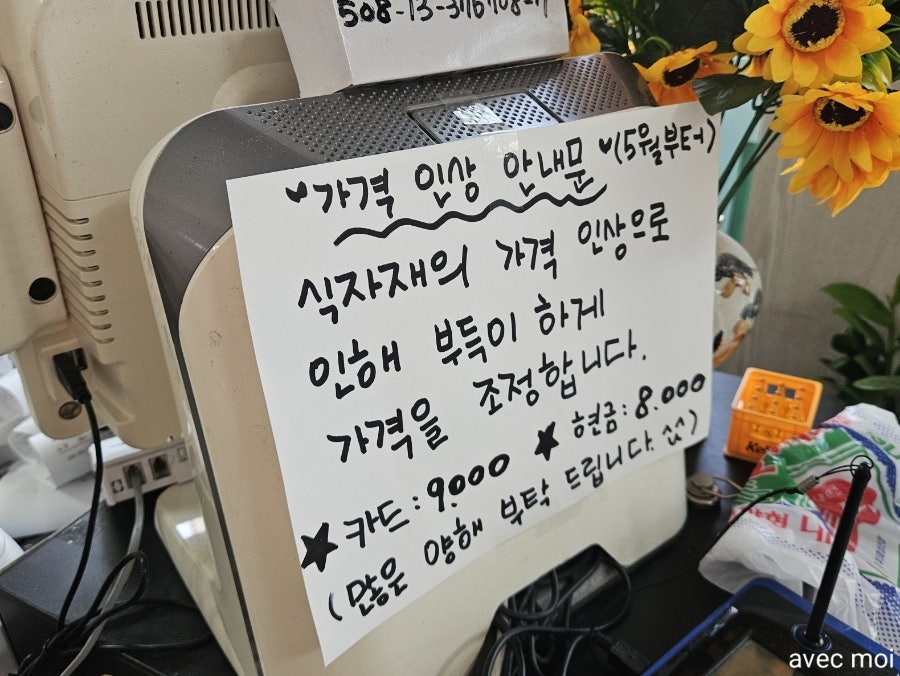 가격 인상 안내문 (5월부터)
식자재의 가격 인상으로
인해 부득이 하게
가격을 조정합니다.
★ 카드: 9.000 ★ 현금: 8.000
(많은 양해 부탁 드립니다. ^^)
avec moi